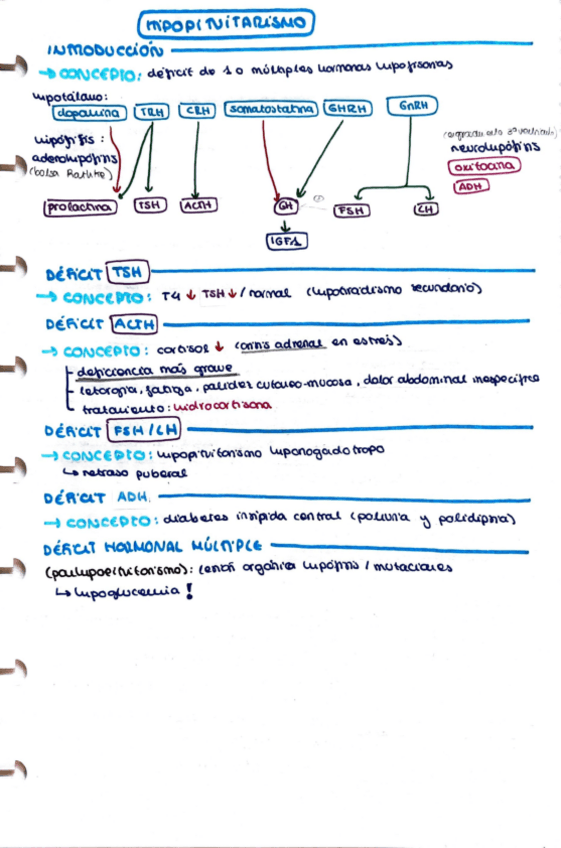 HIPOPITUITARISMO
INTRODUCCIÓN
→ CONCEPTO: déficit de 1 o múltiples hormonas hipofisarias
hipotálamo:
dopamina TRH CRH somatostatina GHRH GnRH
hipófisis:
adenohipófisis
(bolsa Rathke)
neurohipófisis
oxitocina
ADH
prolactina TSH ACTH GH FSH LH
IGF1
DÉFICIT TSH
→ CONCEPTO: T4 ↓ TSH ↓ / normal (hipotiroidismo secundario)
DÉFICIT ACTH
→ CONCEPTO: cortisol ↓ (crisis adrenal en estrés)
deficiencia más grave
letargia, fatiga, palidez cutáneo-mucosa, dolor abdominal inespecífico
tratamiento: hidrocortisona
DÉFICIT FSH/LH
→ CONCEPTO: hipopituitarismo hipogonadotropo
↳ retraso puberal
DÉFICIT ADH.
→ CONCEPTO: diabetes insípida central (poliuria y polidipsia)
DÉFICIT HORMONAL MÚLTIPLE
(panhipopituitarismo): lesión orgánica hipófisis / mutaciones
↳ hipoglucemia !